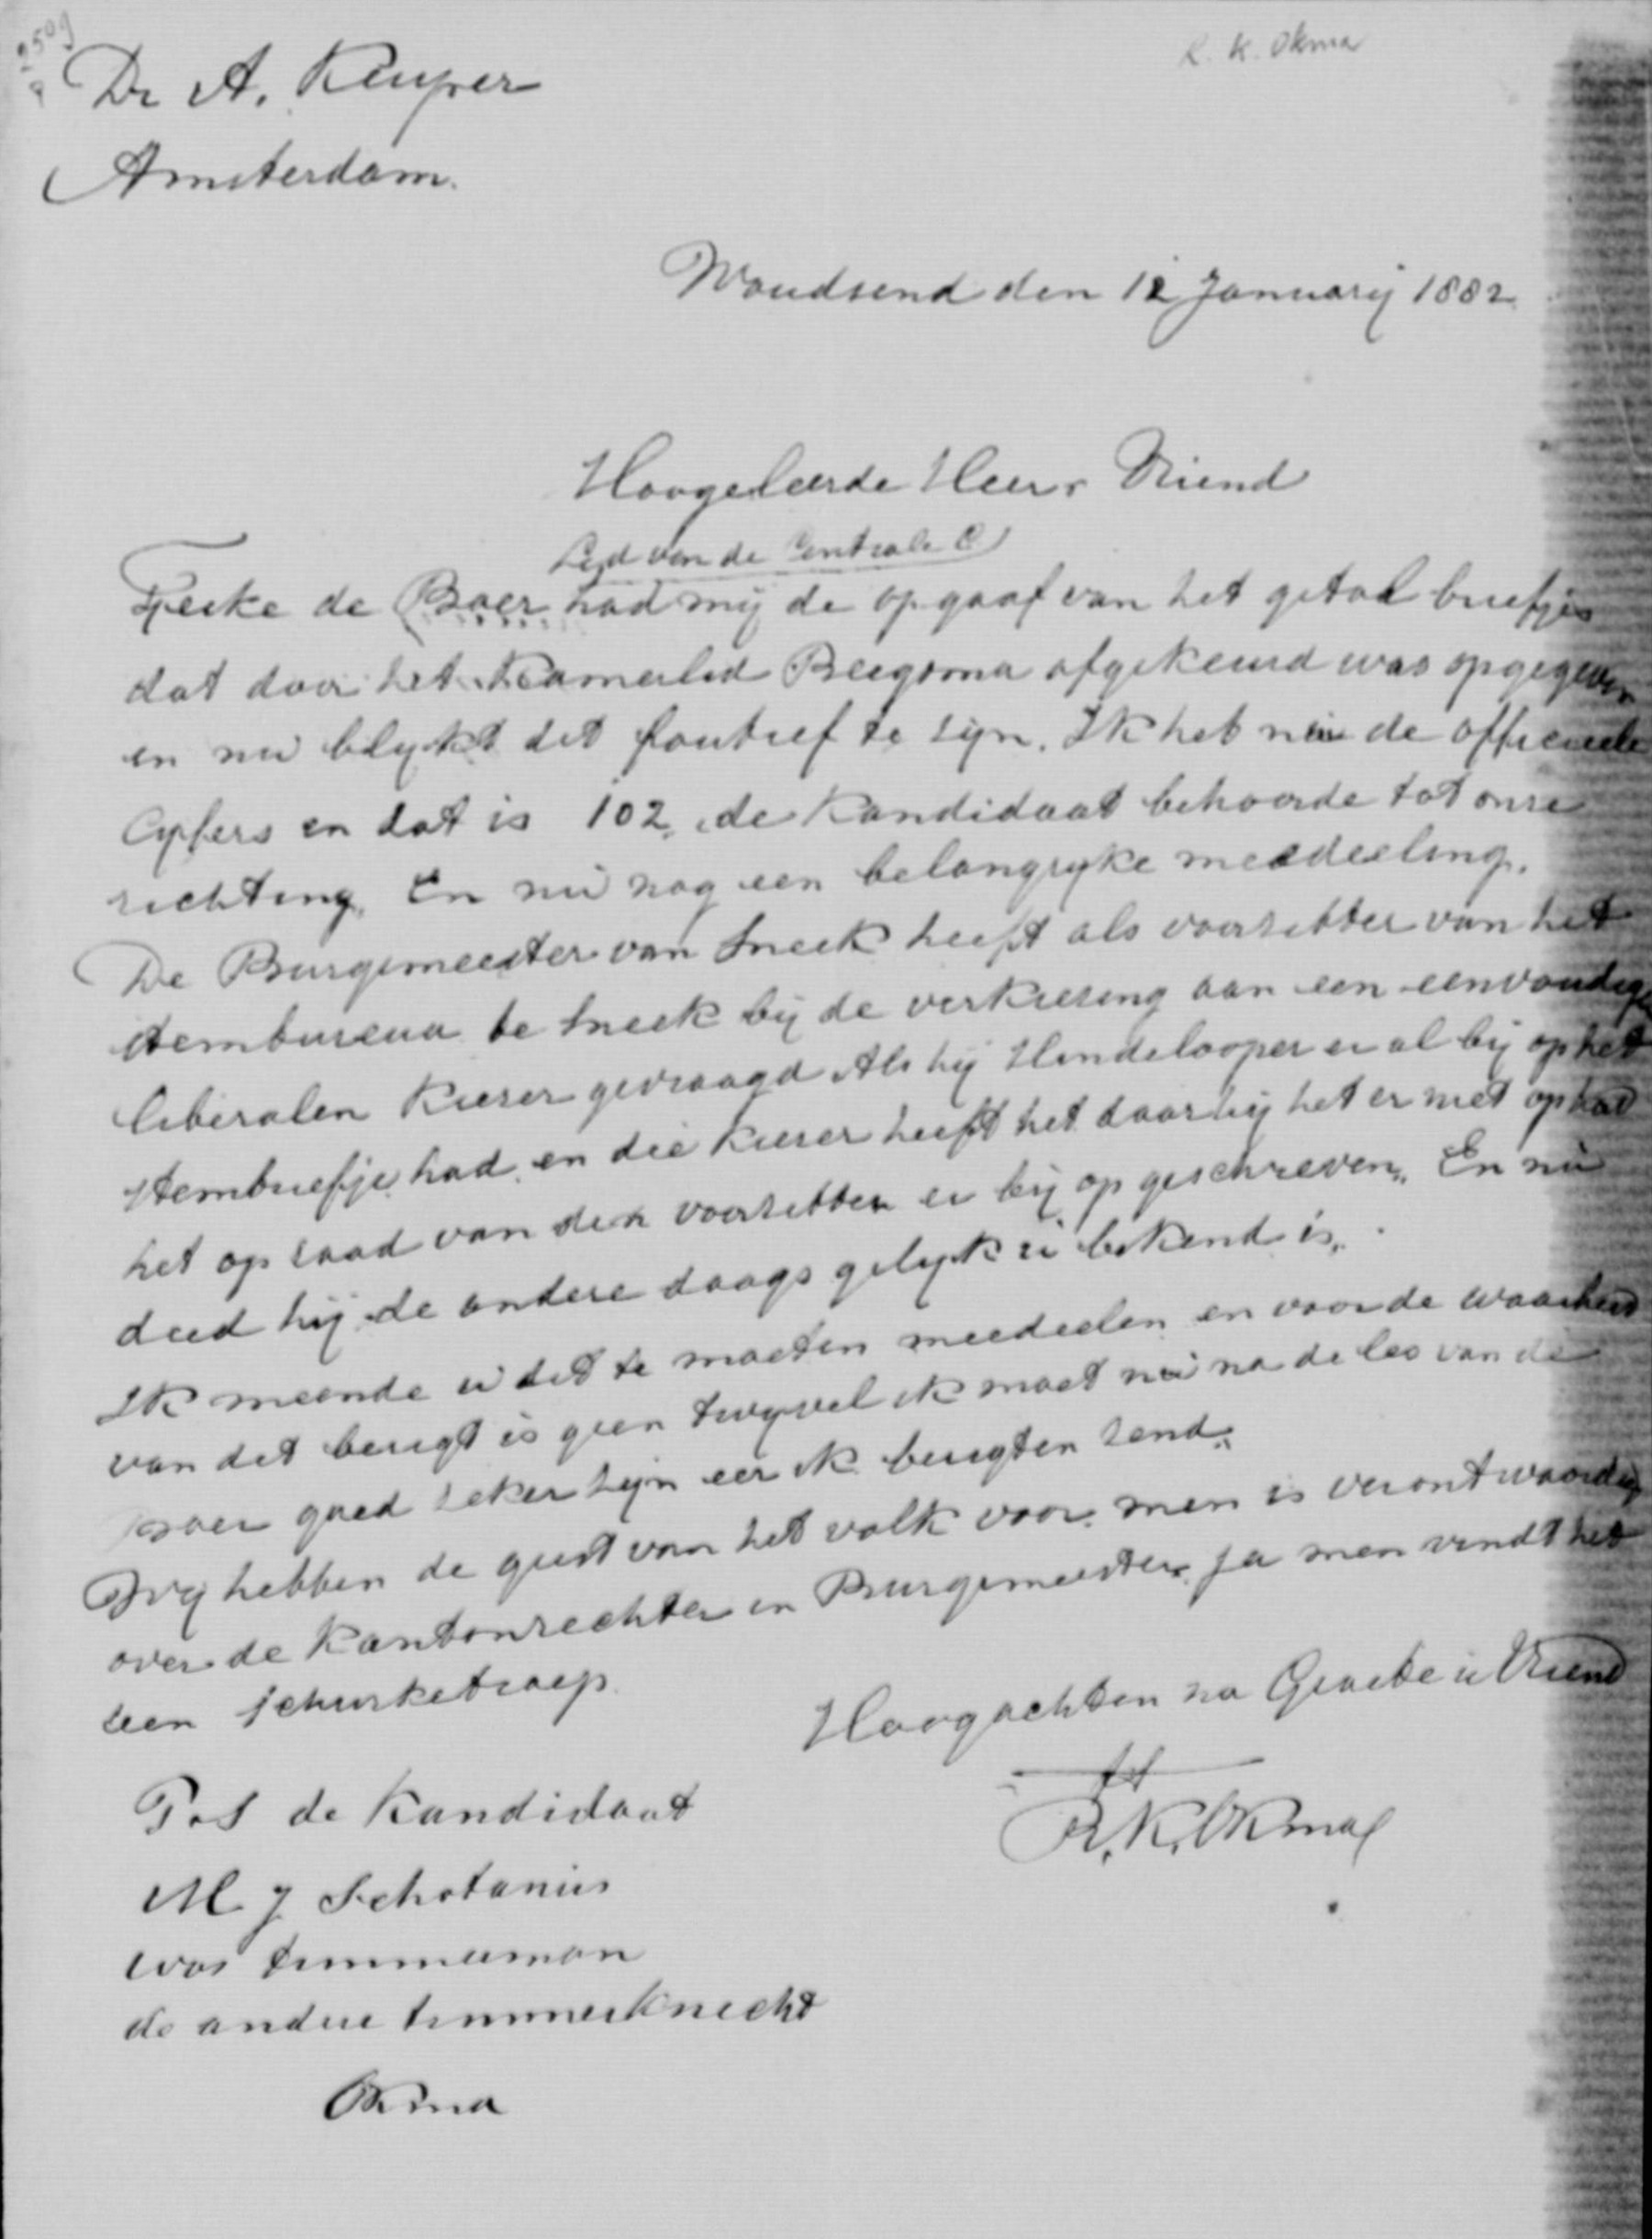 2509
R. K. Okma
Dr A. Kuyper
Amsterdam.
Woudsend den 12 Januarij 1882
Hoogeleerde Heer, Vriend
Lid van de Centrale C
Feike de Boer had mij de opgaaf van het getal briefjes
dat door het Kamerlid Bergsma afgekeurd was opgegeven
en nu blykt dit foutief te zijn. Ik heb nu de officieele
Cyfers en dat is 102, de Kandidaat behoorde tot onze
richting. En nu nog een belangryke meedeeling.
De Burgemeester van Sneek heeft als voorzitter van het
stembureau te Sneek bij de verkiezing aan een eenvoudige
liberalen kiezer gevraagd Als hij Hindelooper er al bij op het
stembriefje had, en die kiezer heeft het daar hij het er niet op had
het op raad van den voorzitter er bij op geschreven. En nu
deed hij de andere daags gelyk u bekend is.
Ik meende u dit te moeten meedeelen en voor de waarheid
van dit berigt is geen twyvel ik moet nu na de les van de
Boer goed zeker zijn eer ik berigten zend.
Wij hebben de geest van het volk voor, men is verontwaardigd
over de Kantonrechter en Burgemeester, ja men vindt het
een schurketroep.
Hoogachten na Groete u Vriend
R. K. Okma
P.S de Kandidaat
M J Schotanus
was timmerman
de andere timmerknecht
Okma